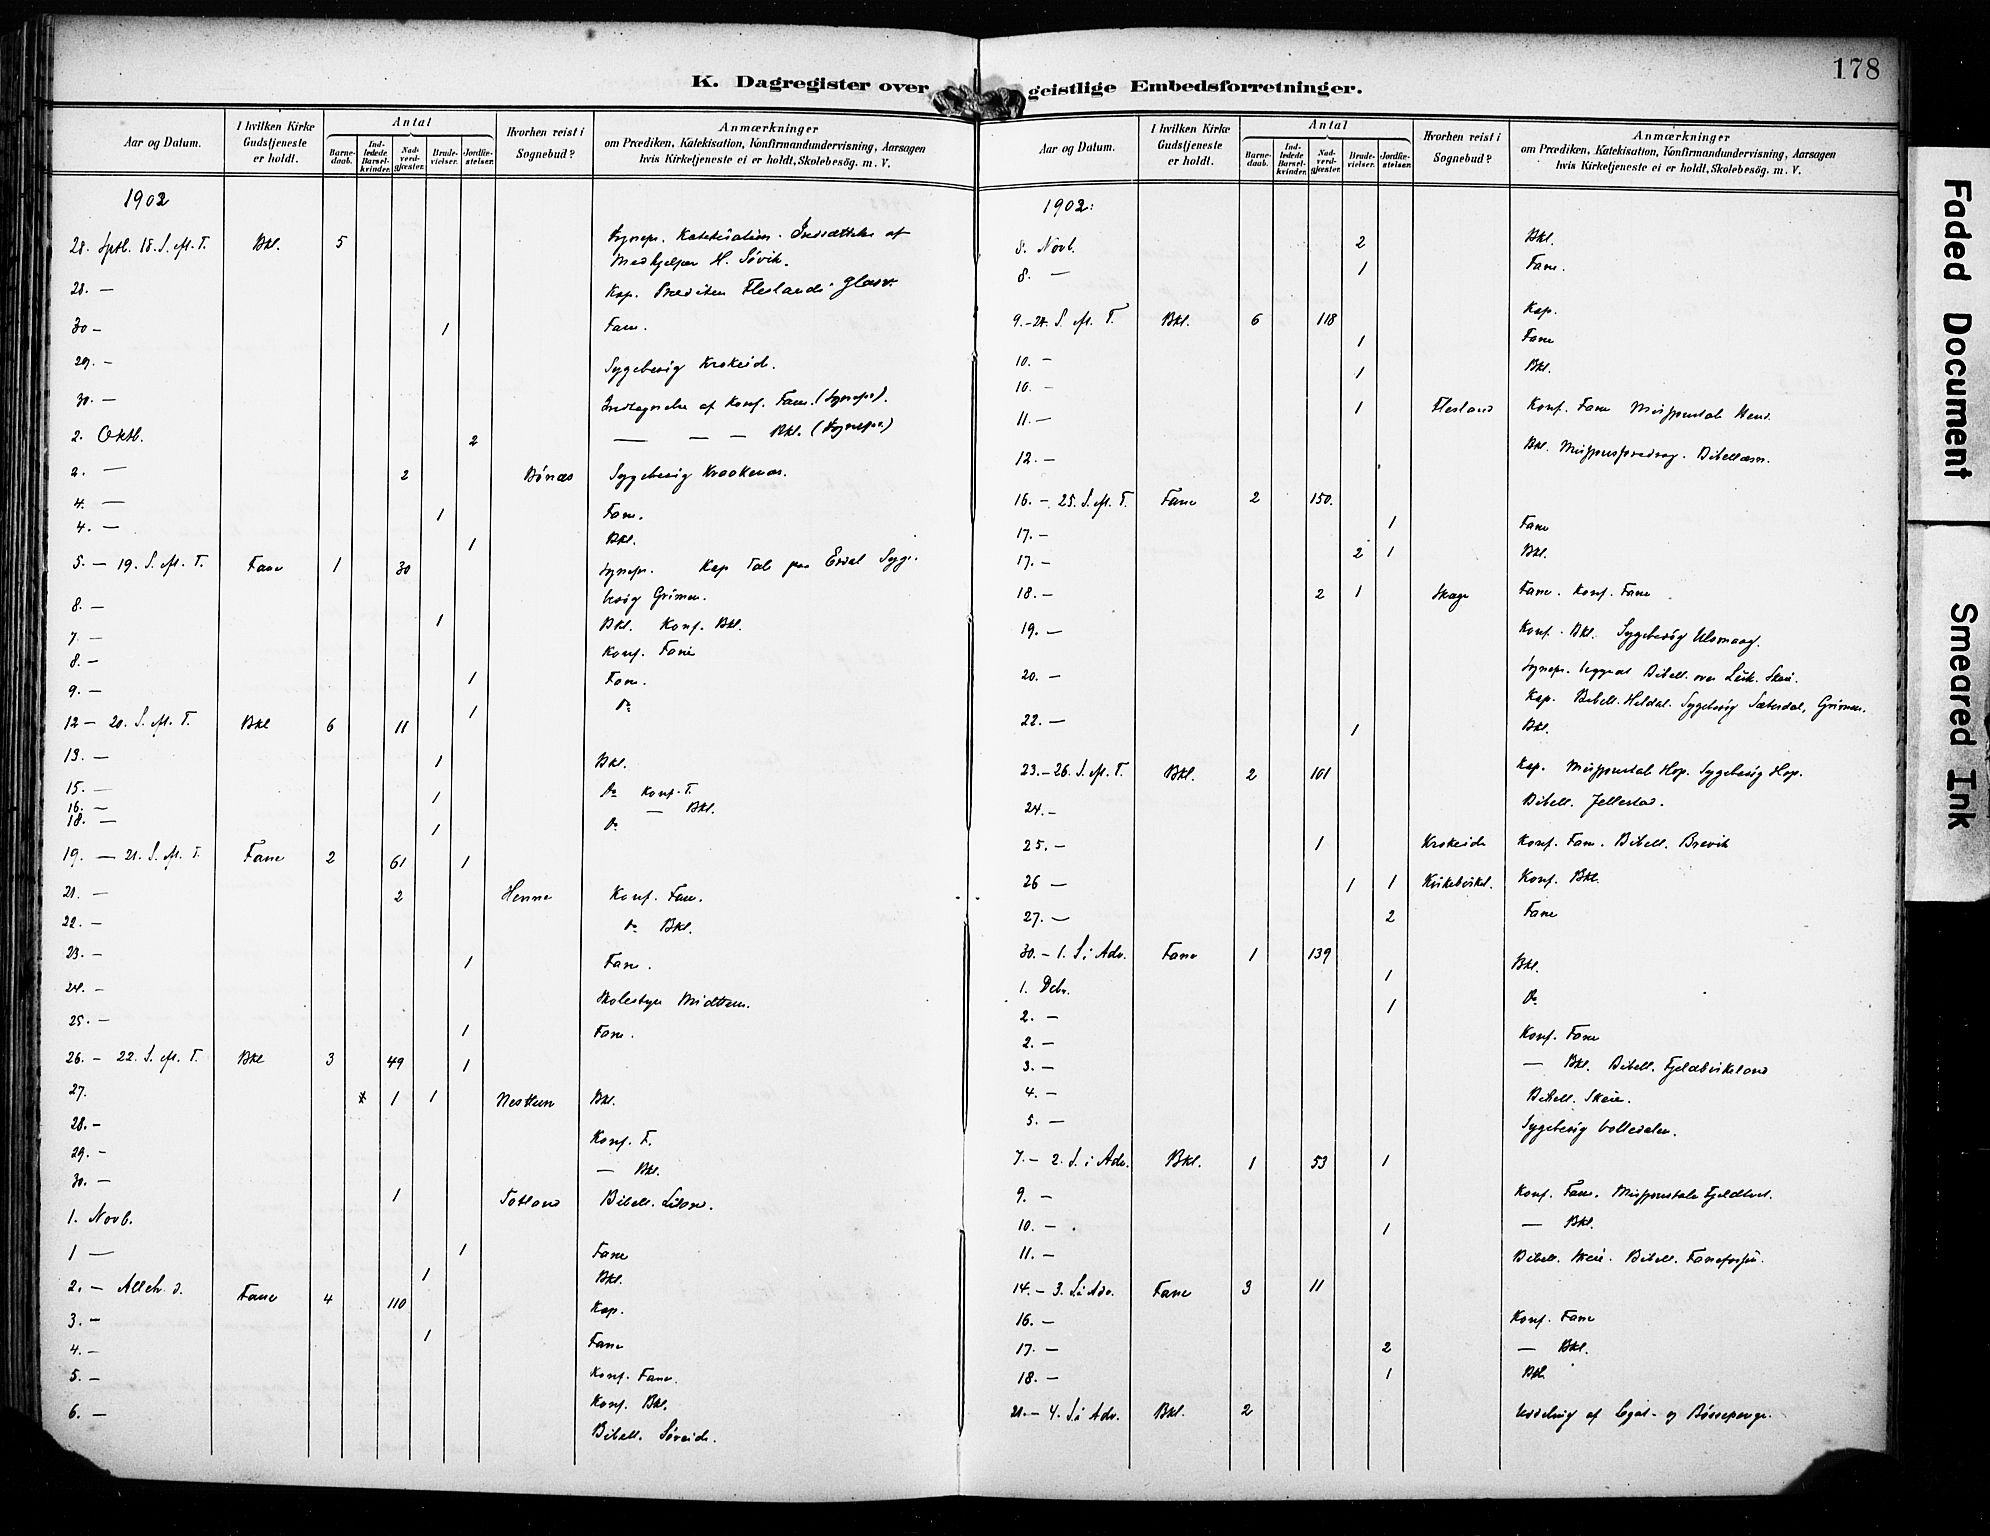 178
K. Dagregister over geistlige Embedsforretninger.
Aar og Datum. | I hvilken Kirke Gudstjeneste er holdt. | Antal | Barnedaab. | Indledede Barselkvinder. | Nadverdgjæster. | Brudevielser. | Jordfæstelser. | Hvorhen reist i Sognebud? | Anmærkninger om Prædiken, Katekisation, Konfirmandundervisning, Aarsagen hvis Kirketjeneste ei er holdt, Skolebesøg. m. V.
1902
28. Septb. 18. S. eft. T. Bkl. 5 Sognepr. Katekisation. Indsættelse af
Medhjelper H. Søvik.
28. — Kap. Prediken Fleslands
30 — 1 Fane.
29. — Sygebesøg Krokeide.
30. — Indtagelse af Konf. Fane. (Sognepr.).
2. Oktb. 2 — — — Bkl. (Sognepr.)
2. — 2 Bønæs Sygebesøg Kraakenes.
4. — 1 Fane.
4. — 1 Bkl.
5. — 19. S. eft. T. Fane 1 30 Sognepr. Kap Tale paa Syge-
besøg Grimen.
8. — 1 Bkl. Konf. Bkl.
7. — Konf. Fane
8. — 1 Fane.
9. — 1 Do
12 — 20. S. eft. T. Bkl 6 11
13. — 1 Bkl.
15. — 1 Do Konf. T.
16. — — Bkl.
18. — 1 Do
19. — 21. S. eft. T. Fane 2 61 1
21. — 2 Henne Konf. Fane.
22. — Do Bkl.
23. — 1 Fane.
24. — Skolestyre Midttun.
25. — 1 Fane.
26. — 22. S. eft. T. Bkl 3 49 1
27. 1 1 Nesttun Bkl.
28. — Konf. F.
29. — — Bkl.
30. — 1 Totland Bibell.
1. Novb.
1 — 1 Fane
1 Bkl.
2. — Alleh. d. Fane 4 110 Kap.
3. — 1 Fane
4. — Konf. Fane.
5. — Konf. Bkl.
6. — Bibell. Søreide.
Aar og Datum. | I hvilken Kirke Gudstjeneste er holdt. | Antal | Barnedaab. | Indledede Barselkvinder. | Nadverdgjæster. | Brudevielser. | Jordfæstelser. | Hvorhen reist i Sognebud? | Anmærkninger om Prædiken, Katekisation, Konfirmandundervisning, Aarsagen hvis Kirketjeneste ei er holdt, Skolebesøg. m. V.
1902:
8. Novb. 2 Bkl.
8. — 1 Fane.
9. — 24. S. eft. T. Bkl. 6 118 Kap.
10. — 1 Fane
10. — 1 Bkl.
11. — 1 Flesland Konf. Fane Missionstale
12. — Bkl. Missionsforedrag. Bibellæsn.
16. — 25. S. eft. T. Fane 2 150.
17. — 1 Fane
17. — 2 1 Bkl.
18. — 2 1 Skage Fane. Konf. Fane
19. — Konf. Bkl. Sygebesøg Ulsmaag.
20. — Sognepr. Bibell. Skeie.
Kap. Bibell. Heldal. Sygebesøg Sætersdal, Grimen.
22. — 1 Bkl.
23. — 26. S. eft. T. Bkl. 2 101 Kap. Missionstale Hop. Sygebesøg Hop.
24. — Bibell. Jellestad.
25. — 1 Krokeide Konf. Fane. Bibell. Brevik
26 — 1 1 Kirkebirkel. Konf. Bkl.
27. — 2 Fane
30. — 1. S. i Adv. Fane 1 139
1. Debr. 1 Bkl.
2. — 1 Do
2. — Konf. Fane
3. — — Bkl. Bibell. Fjeldbirkeland
4. — Bibell. Skeie.
5. — Sygebesøg
7. — 2. S. i Adv. Bkl. 1 53 1
9. — Konf. Fane. Missionstale Fjeldtvet.
10. — 1 — Bkl.
11. — Bibell. Skeie. Bibell.
14. — 3. S. i Adv. Fane 3 11
16. — Konf. Fane
17. — 2 — Bkl.
18. — 1 Bkl
21. — 4. S. i Adv. Bkl. 2 Uddeling af Legat- og Bøssepenge.
Faded Document
Smeared Ink